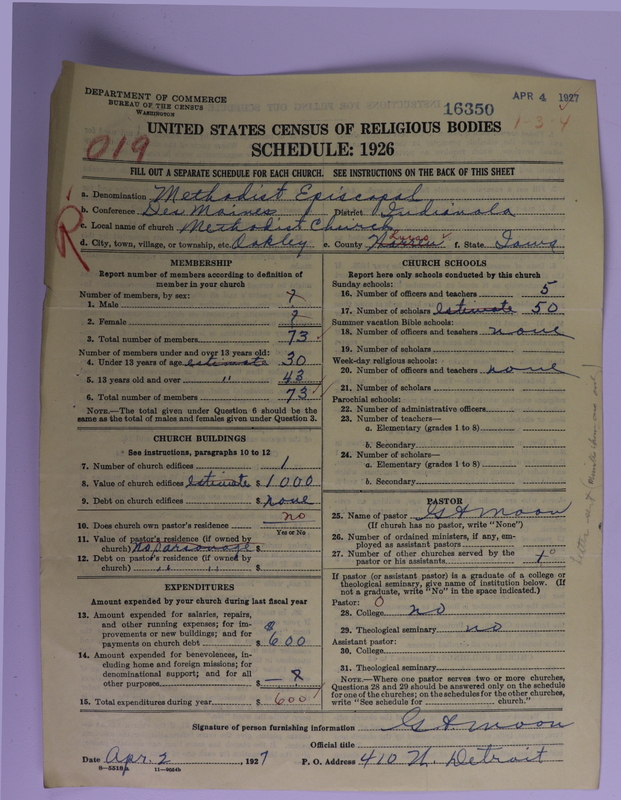 DEPARTMENT OF COMMERCE
BUREAU OF THE CENSUS
WASHINGTON
16350
APR 4 1927
1-3-4
UNITED STATES CENSUS OF RELIGIOUS BODIES
019
SCHEDULE: 1926
FILL OUT A SEPARATE SCHEDULE FOR EACH CHURCH. SEE INSTRUCTIONS ON THE BACK OF THIS SHEET
R
a. Denomination Methodist Episcopal
b. Conference Des Moines District Indianola
c. Local name of church Methodist Church
d. City, town, village, or township, etc. Oakley e. County Lucas f. State Iowa
MEMBERSHIP
Report number of members according to definition of
member in your church
Number of members, by sex:
1. Male ?
2. Female ?
3. Total number of members 73
Number of members under and over 13 years old:
4. Under 13 years of age estimate 30
5. 13 years old and over " 43
6. Total number of members 73
NOTE.—The total given under Question 6 should be the
same as the total of males and females given under Question 3.
CHURCH BUILDINGS
See instructions, paragraphs 10 to 12
7. Number of church edifices 1
8. Value of church edifices Estimate $ 1000
9. Debt on church edifices $ none
10. Does church own pastor's residence no
Yes or No
11. Value of pastor's residence (if owned by
church) No parsonage $
12. Debt on pastor's residence (if owned by
church) " " $
EXPENDITURES
Amount expended by your church during last fiscal year
13. Amount expended for salaries, repairs,
and other running expenses; for im-
provements or new buildings; and for
payments on church debt $ 600
14. Amount expended for benevolences, in-
cluding home and foreign missions; for
denominational support; and for all
other purposes $
15. Total expenditures during year $ 600
CHURCH SCHOOLS
Report here only schools conducted by this church
Sunday schools:
16. Number of officers and teachers 5
17. Number of scholars Estimate 50
Summer vacation Bible schools:
18. Number of officers and teachers none
19. Number of scholars
Week-day religious schools:
20. Number of officers and teachers none
21. Number of scholars
Parochial schools:
22. Number of administrative officers
23. Number of teachers—
a. Elementary (grades 1 to 8)
b. Secondary
24. Number of scholars—
a. Elementary (grades 1 to 8)
b. Secondary
PASTOR
25. Name of pastor G A Moon
(If church has no pastor, write "None")
26. Number of ordained ministers, if any, em-
ployed as assistant pastors
27. Number of other churches served by the
pastor or his assistants
If pastor (or assistant pastor) is a graduate of a college or
theological seminary, give name of institution below. (If
not a graduate, write "No" in the space indicated.)
Pastor: 0
28. College no
29. Theological seminary no
Assistant pastor:
30. College
31. Theological seminary
NOTE.—Where one pastor serves two or more churches,
Questions 28 and 29 should be answered only on the schedule
for one of the churches; on the schedules for the other churches,
write "See schedule for church."
Signature of person furnishing information G A Moon
Official title
Date Apr. 2, 1927 P. O. Address 410 N. Detroit
8—5518a 11—9864b